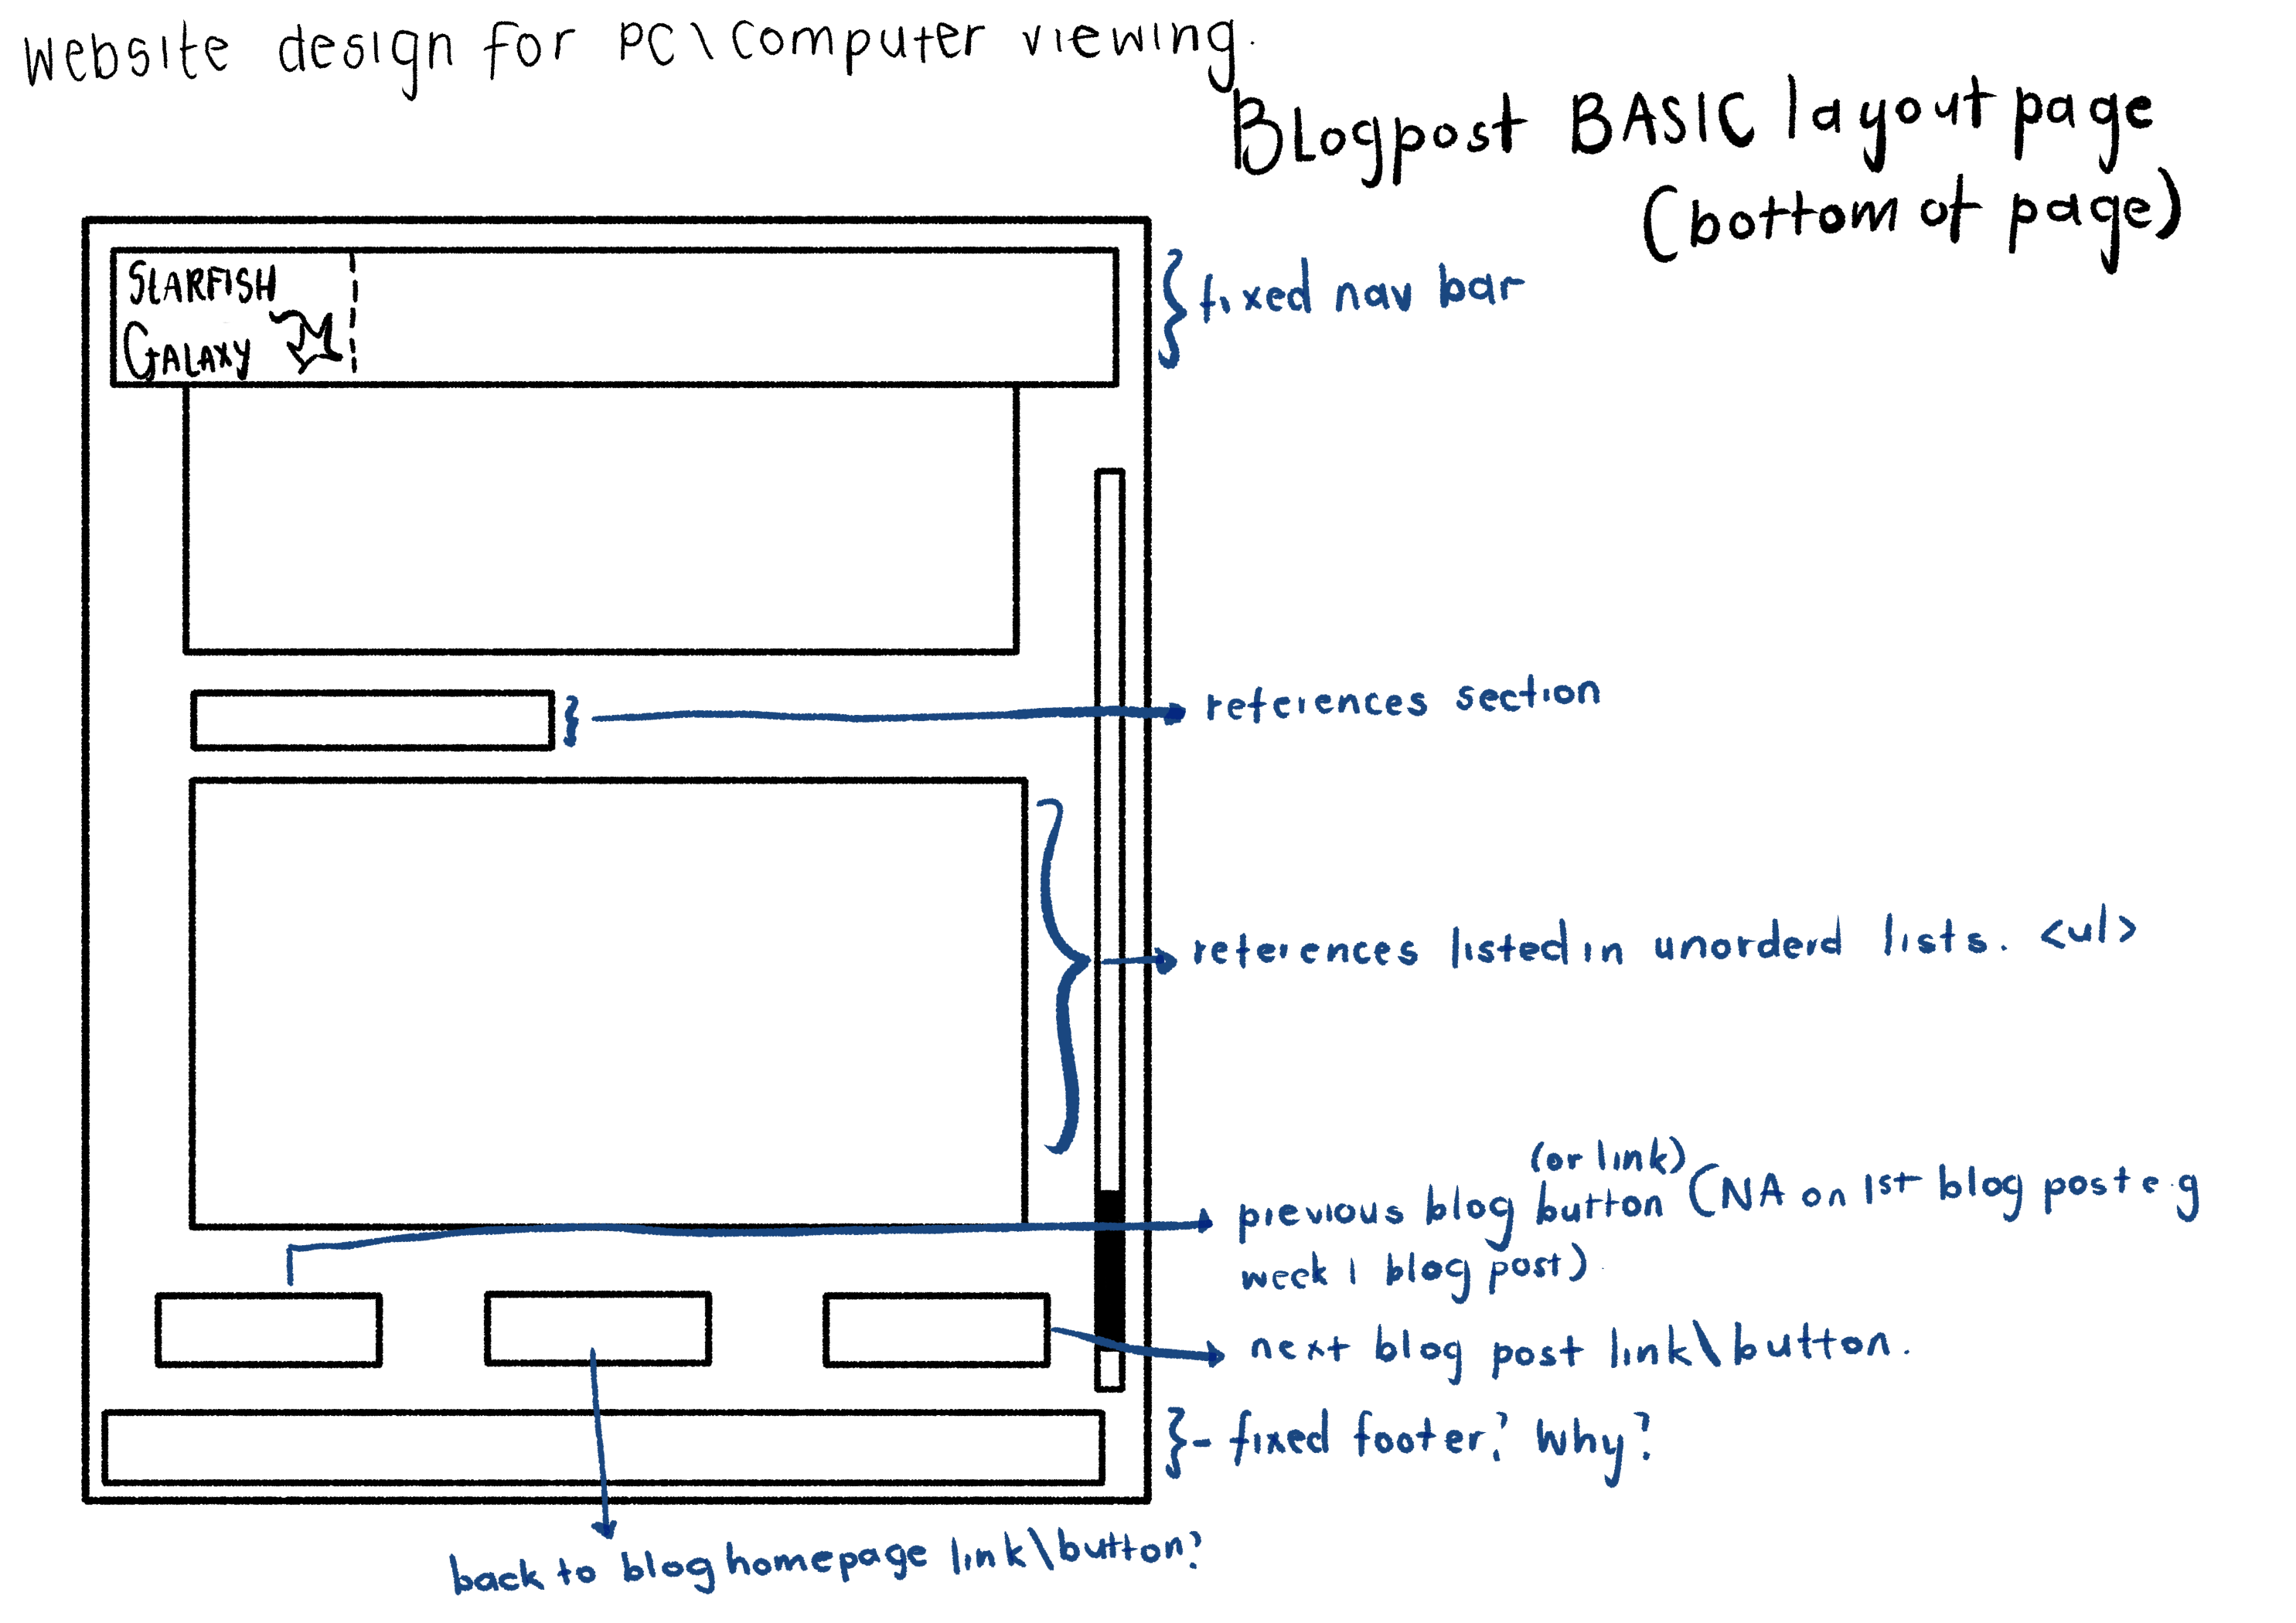 Website design for PC\Computer viewing.
BLogpost BASIC layout page
(bottom of page)
STARFISH
GALAXY
fixed nav bar
references section
references listed in unorderd lists. <ul>
(or link)
previous blog button (NA on 1st blog post e.g
week 1 blog post)
next blog post link\button.
- fixed footer? Why?
back to blog homepage link\button?